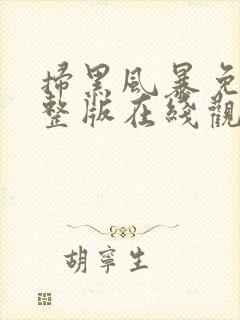 掃黑風暴免
整版在綫觀
胡寧生